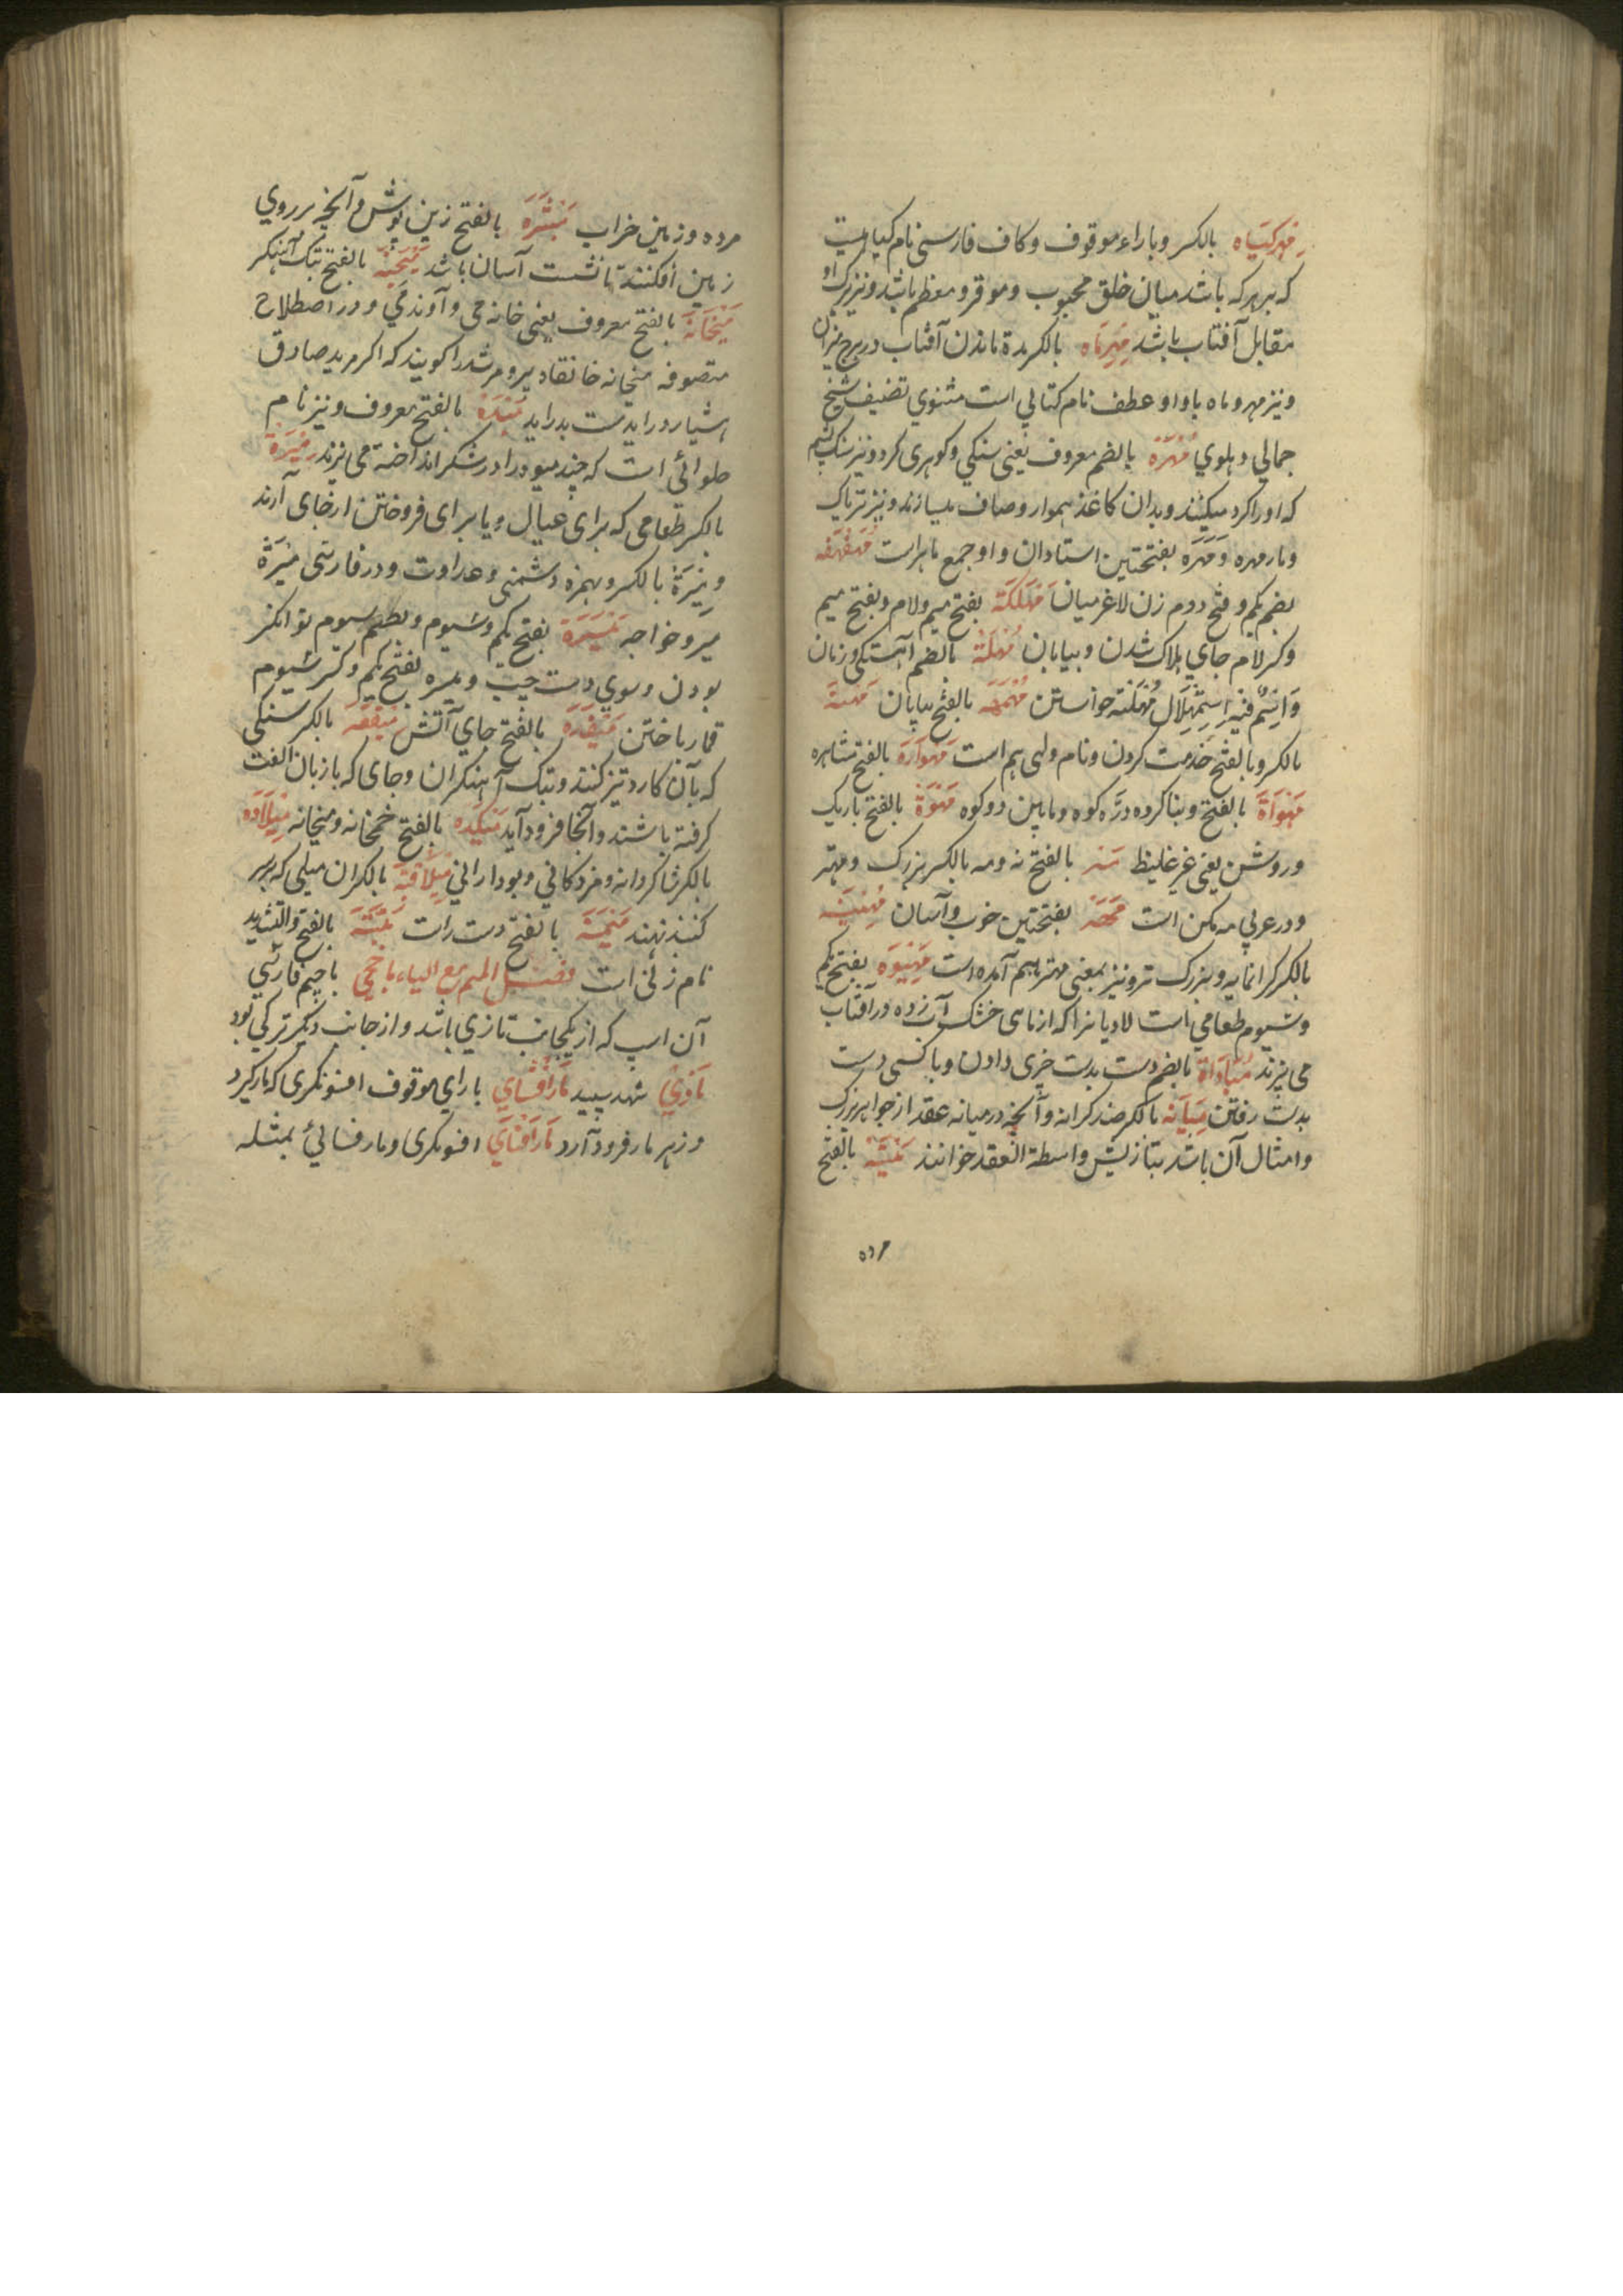 مِهرکیَاه بالکسر وباراء موقوف وکاف فارسی نام کیاهیست
که بر هرکه باشد میان خلق محبوب وموقر ومعظم باشد ونیز برک او
مقابل آفتاب باشد مِهرمَاه بالکسر مدة ماندن آفتاب در برج میزان
ونیز مهر وماه باواو عطف نام کتابی است مثنوی تصنیف شیخ
جمالی دهلوی مُهرَه بالضم معروف یعنی سنکی وکوهری کرد ونیز سنک پشم
که اورا کرد میکنند وبدان کاغذ هموار وصاف میسازند ونیز تریاک
ومار مهره وَمَهَرَه بفتحتین استادان واو جمع ماهر است مُهَفهَفه
بضم یکم وفتح دوم زن لاغر میان مَهلَکَة بفتح میم ولام وبفتح میم
وکسر لام جای هلاک شدن وبیابان مُهلَة بالضم آهستکی وزمان
وَاسم فیه استِمهَال مُهلَت خواستن مَهمَهَه بالفتح بیابان مَهنَة
بالکسر وبالفتح خدمت کردن ونام ولی هم است مَهوَارَة بالفتح مشاهره
مَهوَاة بالفتح وبنا کرده درّه کوه ومابین دو کوه مَهوَة بالفتح باریک
وروشن یعنی غیر غلیظ مَه بالفتح نه ومه بالکسر بزرک ومهتر
ودر عربی مه مکن است مَهَه بفتحتین خوب وآسان مِهینَه
بالکسر کرانمایه وبزرک تر ونیز بمعنی مهتر هم آمده است مَهیوَه بفتح یکم
وسیوم طعامی است لادیانرا که از ماهی خشک آب زده در آفتاب
می پزند مُیَادَاة بالضم دست بدست چیزی دادن وبا کسی دست
بدست رفتن مِیَانَه بالکسر ضد کرانه وآنچه در میانه عقد از جواهر بزرک
وامثال آن باشد بتازیش واسطة العقد خوانند مَیتَة بالفتح
مرده
مرده وزمین خراب مَیثَرَه بالفتح زین پوش وآنچه بر روی
زمین افکنند تا نشست آسان باشد مَیجَنَة بالفتح پتک آهنکر
مَیخَانَه بالفتح معروف یعنی خانه می وآوند می ودر اصطلاح
متصوفه میخانه خانقاه پیر ومرشد را کویند که اکر مرید صادق
هشیار در اید مست بدر اید مَیدَه بالفتح معروف ونیز نام
حلوائی است که چند میوه را در شکر انداخته می پزند مِیرَة
بالکسر طعامی که برای عیال ویا برای فروختن از جای آرند
ومِئرَة بالکسر وبهمزه دشمنی وعداوت ودر فارسی مِیرَة
میر وخواجه مَیسَرَة بفتح یکم وسیوم وبضم سیوم توانکر
بودن وسوی دست چپ ومیسره بفتح یکم وکسر سیوم
قمار باختن مَیفَدَه بالفتح جای آتش مِیقَعَه بالکسر سنکی
که بآن کارد تیز کنند وپتک آهنکران وجای که باز بآن الفت
کرفته باشند وآنجا فرود آید مَیکَدَه بالفتح خمخانه ومیخانه مِیلَادَه
بالکسر شاکردانه ومزد کانی وبودارانی مِیلَاقَه بالکسر آن میلی که بر سر
کنبد نهند مَیمَنَة بالفتح دست راست مَیَّه بالفتح والتشدید
نام زنی است فصل المیم مع الیاء مَاچچی با جیم فارسی
آن اسپ که از یکجانب تازی باشد واز جانب دیکر ترکی بود
مَاذِی شهد سپید مَارافسَای با رای موقوف افسونکری که مار کیرد
وزهر مار فرود آرد مَارَافنَای افسونکری ومار فسائی بمثله